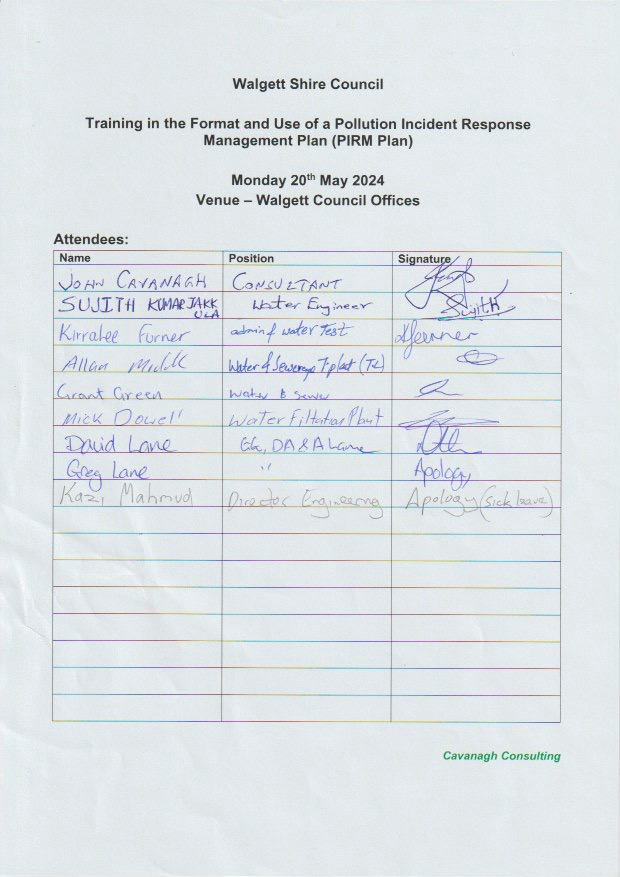 Walgett Shire Council
Training in the Format and Use of a Pollution Incident Response
Management Plan (PIRM Plan)
Monday 20th May 2024
Venue – Walgett Council Offices
Attendees:
Name Position Signature
JOHN CAVANAGH CONSULTANT
SUJITH KUMAR JAKK Water Engineer Sujith
ULA
Kirralee Furner admin & water Test KFurner
Allan Water & Sewerage
Grant Green Water & Sewer
Mick Dowell Water Filtration Plant
David Lane DA & A Lane
Greg Lane " Apology
Kazi Mahmud Director Engineering Apology (sick leave)
Cavanagh Consulting